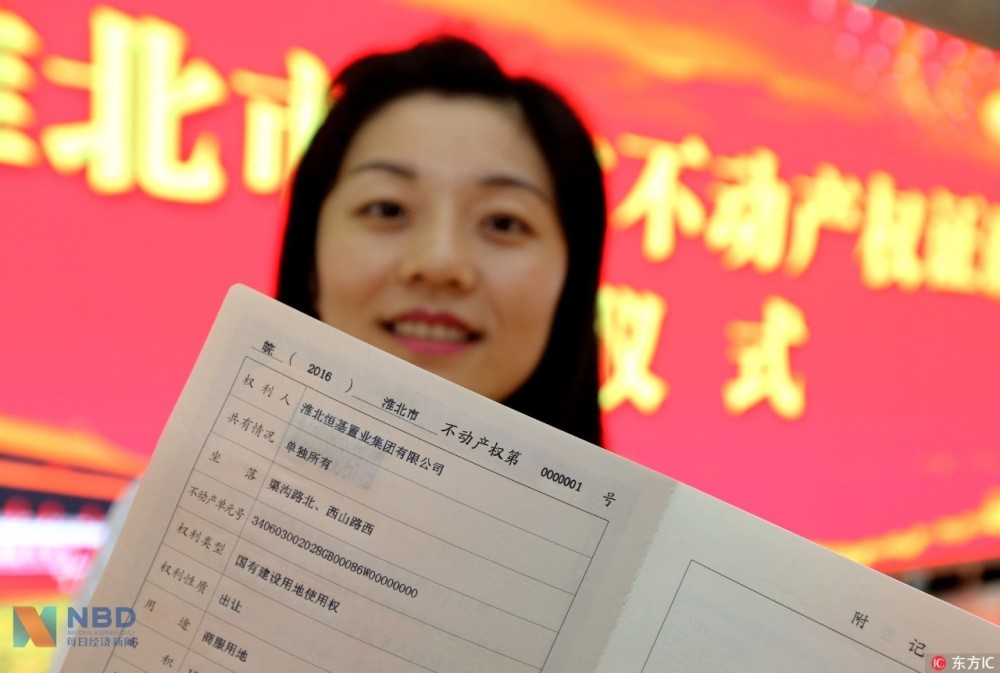 淮北市 不动产权证
仪式
皖(2016)淮北市不动产权第0000001号
权利人 淮北恒基置业集团有限公司
共有情况 单独所有
坐落 渠沟路北、西山路西
不动产单元号 340603002028GB00086W00000000
权利类型 国有建设用地使用权
权利性质 出让
用途 商服用地
积
附记
NBD
每日经济新闻
东方IC